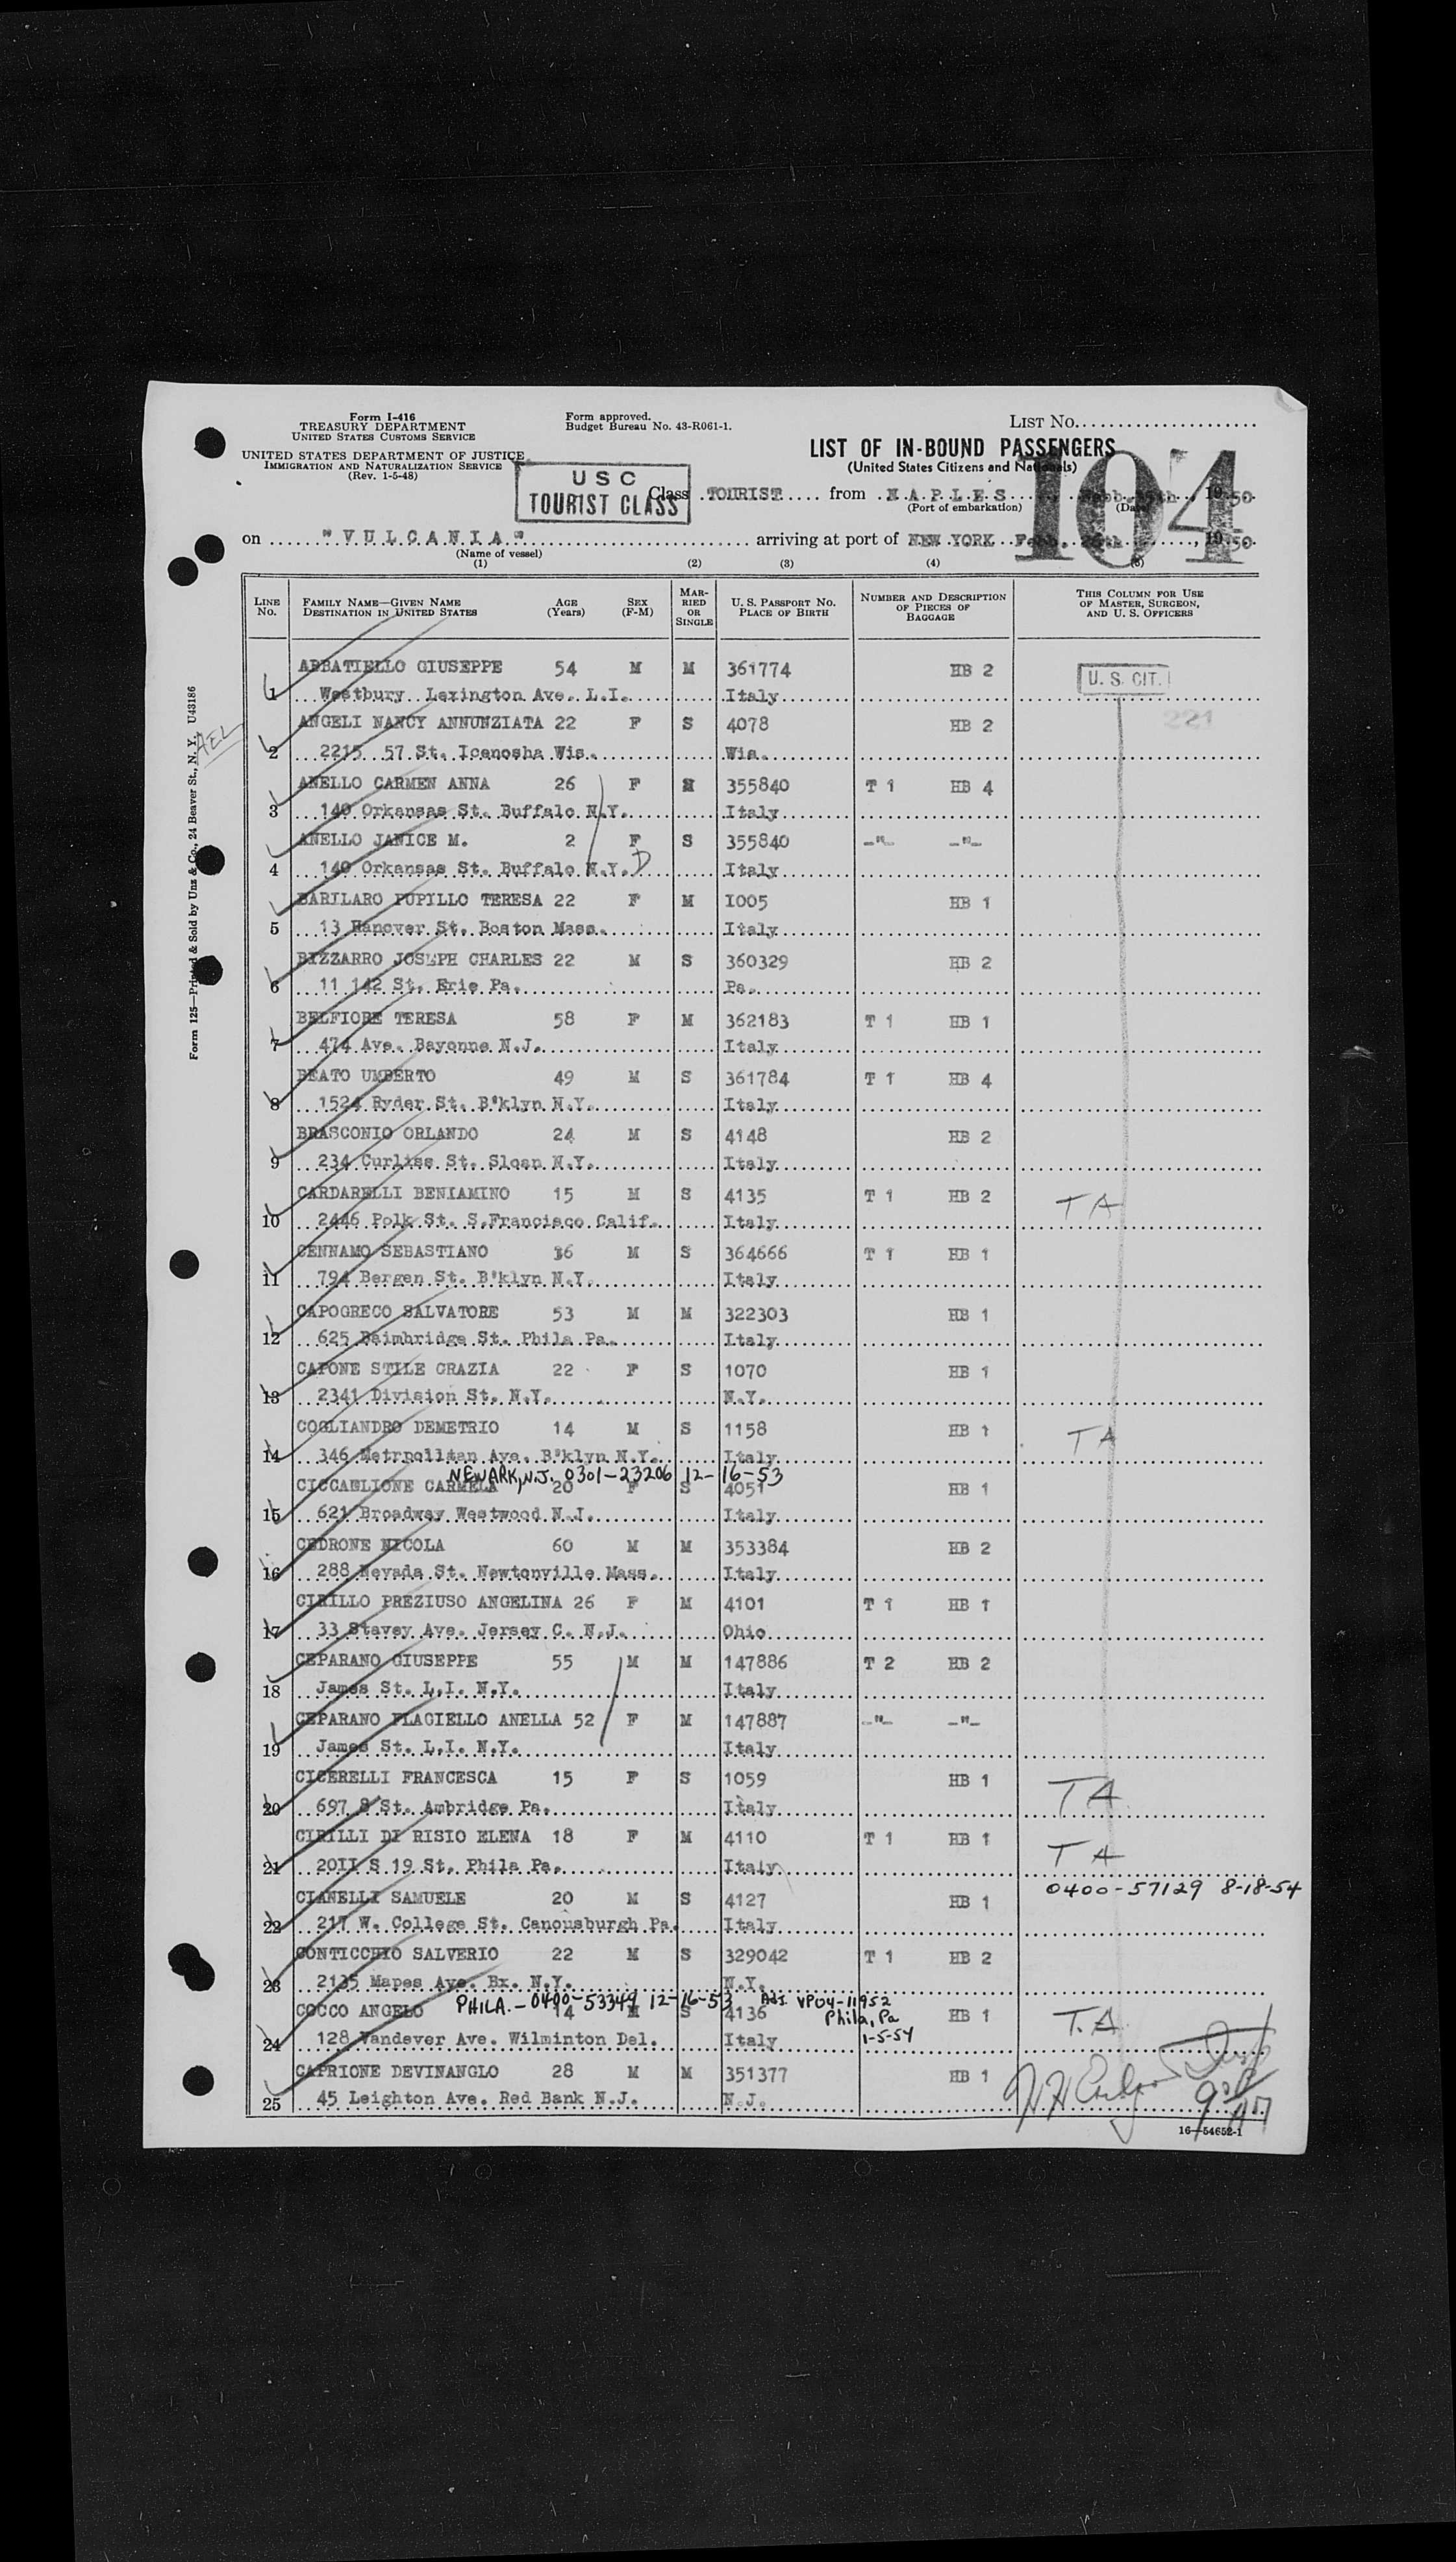 Form I-416
TREASURY DEPARTMENT
UNITED STATES CUSTOMS SERVICE
UNITED STATES DEPARTMENT OF JUSTICE
IMMIGRATION AND NATURALIZATION SERVICE
(Rev. 1-5-48)
Form approved.
Budget Bureau No. 43-R061-1.
LIST No.
LIST OF IN-BOUND PASSENGERS
(United States Citizens and Nationals)
104
USC
TOURIST CLASS
Class TOURIST from N A P L E S 1950
(Port of embarkation) (Date)
on "V U L C A N I A" arriving at port of NEW YORK 1950
(Name of vessel)
(1) (2) (3) (4) (5)
LINE No. FAMILY NAME—GIVEN NAME DESTINATION IN UNITED STATES AGE (Years) SEX (F-M) MARRIED OR SINGLE U. S. PASSPORT No. PLACE OF BIRTH NUMBER AND DESCRIPTION OF PIECES OF BAGGAGE THIS COLUMN FOR USE OF MASTER, SURGEON, AND U. S. OFFICERS
ABBATIELLO GIUSEPPE 54 M M 361774 HB 2 U. S. CIT.
1 Westbury Lexington Ave. L.I. Italy
ANGELI NANCY ANNUNZIATA 22 F S 4078 HB 2 221
2 2215 57 St. Icenosha Wis. Wis.
ANELLO CARMEN ANNA 26 F M 355840 T 1 HB 4
3 140 Orkansas St. Buffalo N.Y. Italy
ANELLO JANICE M. 2 F S 355840 -"- -"-
4 140 Orkansas St. Buffalo N.Y. D Italy
BARILARO PUPILLO TERESA 22 F M I005 HB 1
5 13 Hanover St. Boston Mass. Italy
BIZZARRO JOSEPH CHARLES 22 M S 360329 HB 2
6 11 142 St. Erie Pa. Pa.
BELFIORE TERESA 58 F M 362183 T 1 HB 1
7 474 Ave. Bayonne N.J. Italy
BEATO UMBERTO 49 M S 361784 T 1 HB 4
8 1524 Ryder St. B'klyn N.Y. Italy
BRASCONIO ORLANDO 24 M S 4148 HB 2
9 234 Curliss St. Sloan N.Y. Italy
CARDARELLI BENIAMINO 15 M S 4135 T 1 HB 2 TA
10 2446 Polk St. S.Francisco Calif. Italy
CENNAMO SEBASTIANO 36 M S 364666 T 1 HB 1
11 794 Bergen St. B'klyn N.Y. Italy
CAPOGRECO SALVATORE 53 M M 322303 HB 1
12 625 Baimbridge St. Phila Pa. Italy
CAPONE STILE GRAZIA 22 F S 1070 HB 1
13 2341 Division St. N.Y. N.Y.
COGLIANDRO DEMETRIO 14 M S 1158 HB 1 TA
14 346 Metrpolitan Ave. B'klyn N.Y. Italy
NEWARK, N.J. 0301-23206 12-16-53
CICCAGLIONE CARMELA 20 F S 4051 HB 1
15 621 Broadway Westwood N.J. Italy
CEDRONE NICOLA 60 M M 353384 HB 2
16 288 Nevada St. Newtonville Mass. Italy
CIRILLO PREZIUSO ANGELINA 26 F M 4101 T 1 HB 1
17 33 Stavey Ave. Jersey C. N.J. Ohio
CEPARANO GIUSEPPE 55 M M 147886 T 2 HB 2
18 James St. L.I. N.Y. Italy
CEPARANO FLAGIELLO ANELLA 52 F M 147887 -"- -"-
19 James St. L.I. N.Y. Italy
CICERELLI FRANCESCA 15 F S 1059 HB 1 TA
20 697 8 St. Ambridge Pa. Italy
CIRILLI DI RISIO ELENA 18 F M 4110 T 1 HB 1 TA
21 20II S 19 St. Phila Pa. Italy
0400-57129 8-18-54
CIANELLI SAMUELE 20 M S 4127 HB 1
22 217 W. College St. Canousburgh Pa. Italy
CONTICCHIO SALVERIO 22 M S 329042 T 1 HB 2
23 2135 Mapes Ave. Bx. N.Y. N.Y.
PHILA.-0400-53349 12-16-53 Adj. VP04-11952
Phila, Pa
1-5-54
COCCO ANGELO 14 M S 4136 HB 1 T.A.
24 128 Vandever Ave. Wilminton Del. Italy
CAPRIONE DEVINANGLO 28 M M 351377 HB 1
25 45 Leighton Ave. Red Bank N.J. N.J.
16—54652-1
Form 125—Printed & Sold by Unz & Co., 24 Beaver St., N. Y. U43186